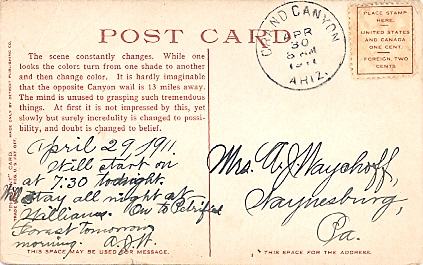 POST CARD
GRAND CANYON
APR
30
1911
ARIZ.
PLACE STAMP
HERE.
UNITED STATES
AND CANADA
ONE CENT.
FOREIGN, TWO
CENTS
The scene constantly changes. While one
looks the colors turn from one shade to another
and then change color. It is hardly imaginable
that the opposite Canyon wall is 13 miles away.
The mind is unused to grasping such tremendous
things. At first it is not impressed by this, yet
slowly but surely incredulity is changed to possi-
bility, and doubt is changed to belief.
April 29, 1911.
Will start on
at 7:30 tonight.
Will stay all night at
Williams. On to Petrified
Forest Tomorrow
morning. A.J.W.
Mrs. A J Waychoff,
Waynesburg,
Pa.
THIS SPACE MAY BE USED FOR MESSAGE.
THIS SPACE FOR THE ADDRESS.